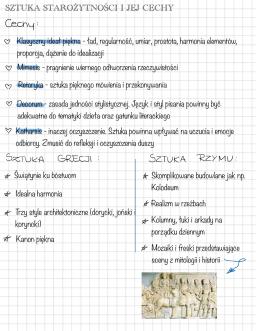 SZTUKA STAROŻYTNOŚCI I JEJ CECHY
Cechy:
Klasyczny ideał piękna - ład, regularność, umiar, prostota, harmonia elementów,
proporcja, dążenie do idealizacji
Mimesis - pragnienie wiernego odtworzenia rzeczywistości
Retoryka - sztuka pięknego mówienia i przekonywania
Decorum - zasada jedności stylistycznej. Język i styl pisania powinny być
adekwatne do tematyki dzieła oraz gatunku literackiego
Katharsis - inaczej oczyszczenie. Sztuka powinna wpływać na uczucia i emocje
odbiorcy. Zmusić do refleksji i oczyszczenia duszy
SZTUKA GRECJI:
Świątynie ku bóstwom
Idealna harmonia
Trzy style architektoniczne (dorycki, joński i
koryncki)
Kanon piękna
SZTUKA RZYMU:
Skomplikowane budowlane jak np.
Koloseum
Realizm w rzeźbach
Kolumny, łuki i arkady na
porządku dziennym
Mozaiki i freski przedstawiające
sceny z mitologii i historii